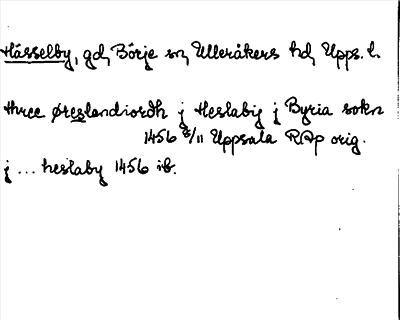 Hässelby, gd, Börje sn, Ulleråkers hd, Upps. l.
three øreslandiordh j Heslaby j Byria sokn
1456 8/11 Uppsala RAp orig.
j ... heslaby 1456 ib.